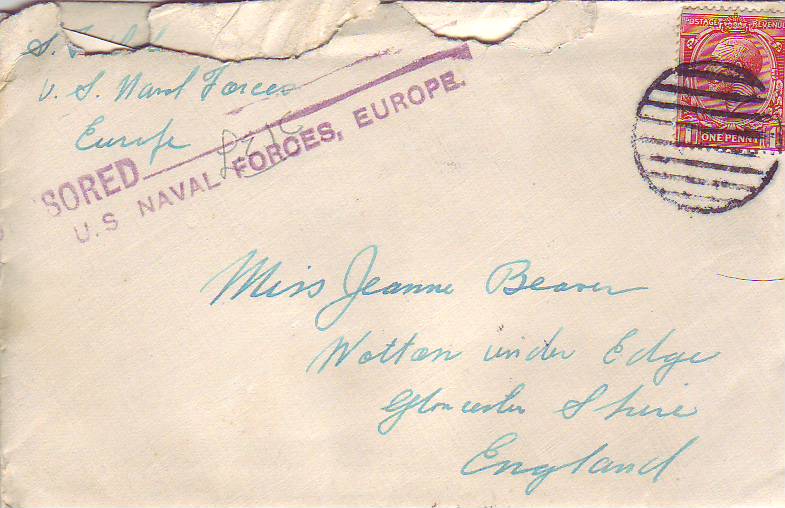 S.
U. S. Naval Forces
Europe
SORED
U.S NAVAL FORCES, EUROPE.
POSTAGE REVENUE
ONE PENNY
Miss Jeanne Beaver
Wotton under Edge
Gloucester Shire
England